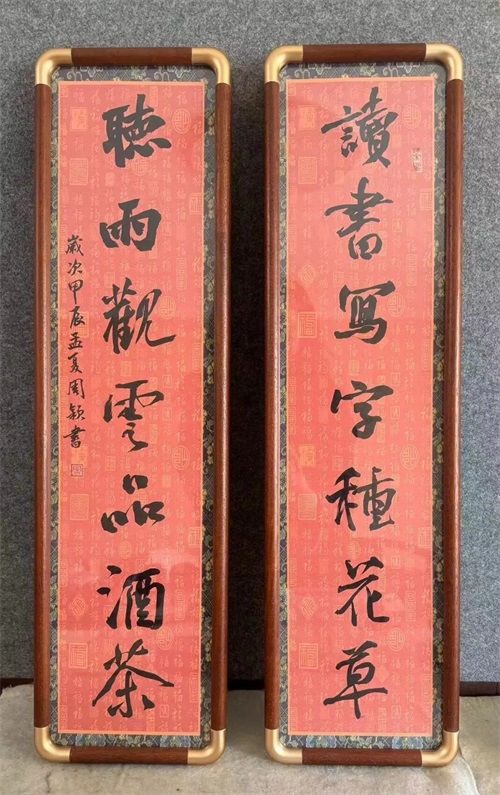 讀書寫字種花草
聽雨觀雲品酒茶
歲次甲辰孟夏周穎書